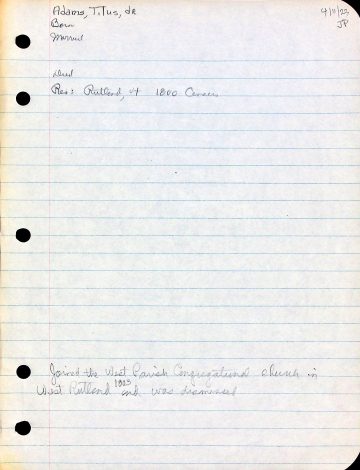 Adams, Titus, Jr
4/11/23
JP
Born
Married
Died
Res: Rutland, Vt 1800 Census
Joined the West Parish Congregational Church in
West Rutland 1803 and was dismissed